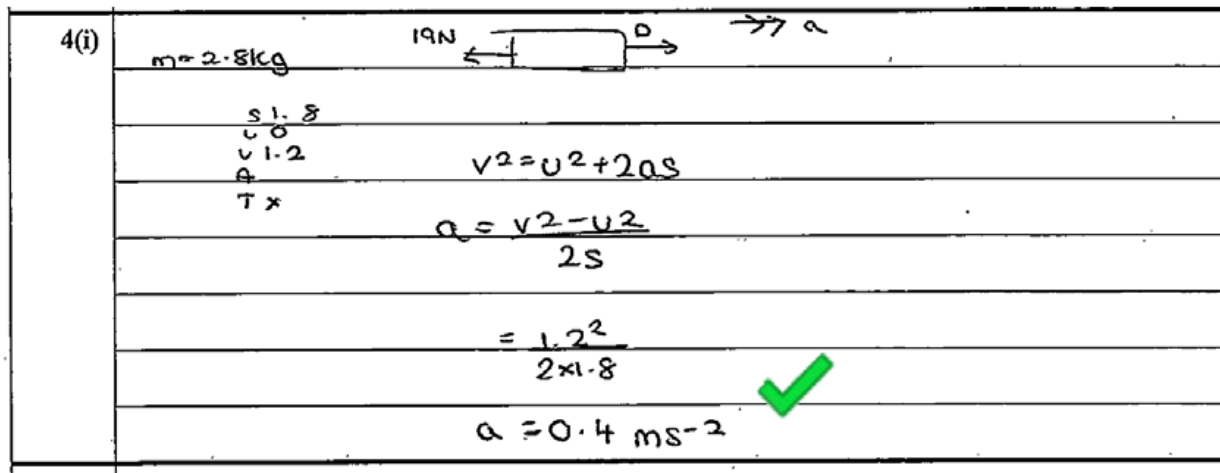 4(i)
m = 2.8kg
19N D a
S 1.8
U 0
V 1.2
A
T x
v² = u² + 2as
a = v² - u² / 2s
= 1.2² / 2x1.8
a = 0.4 ms-2